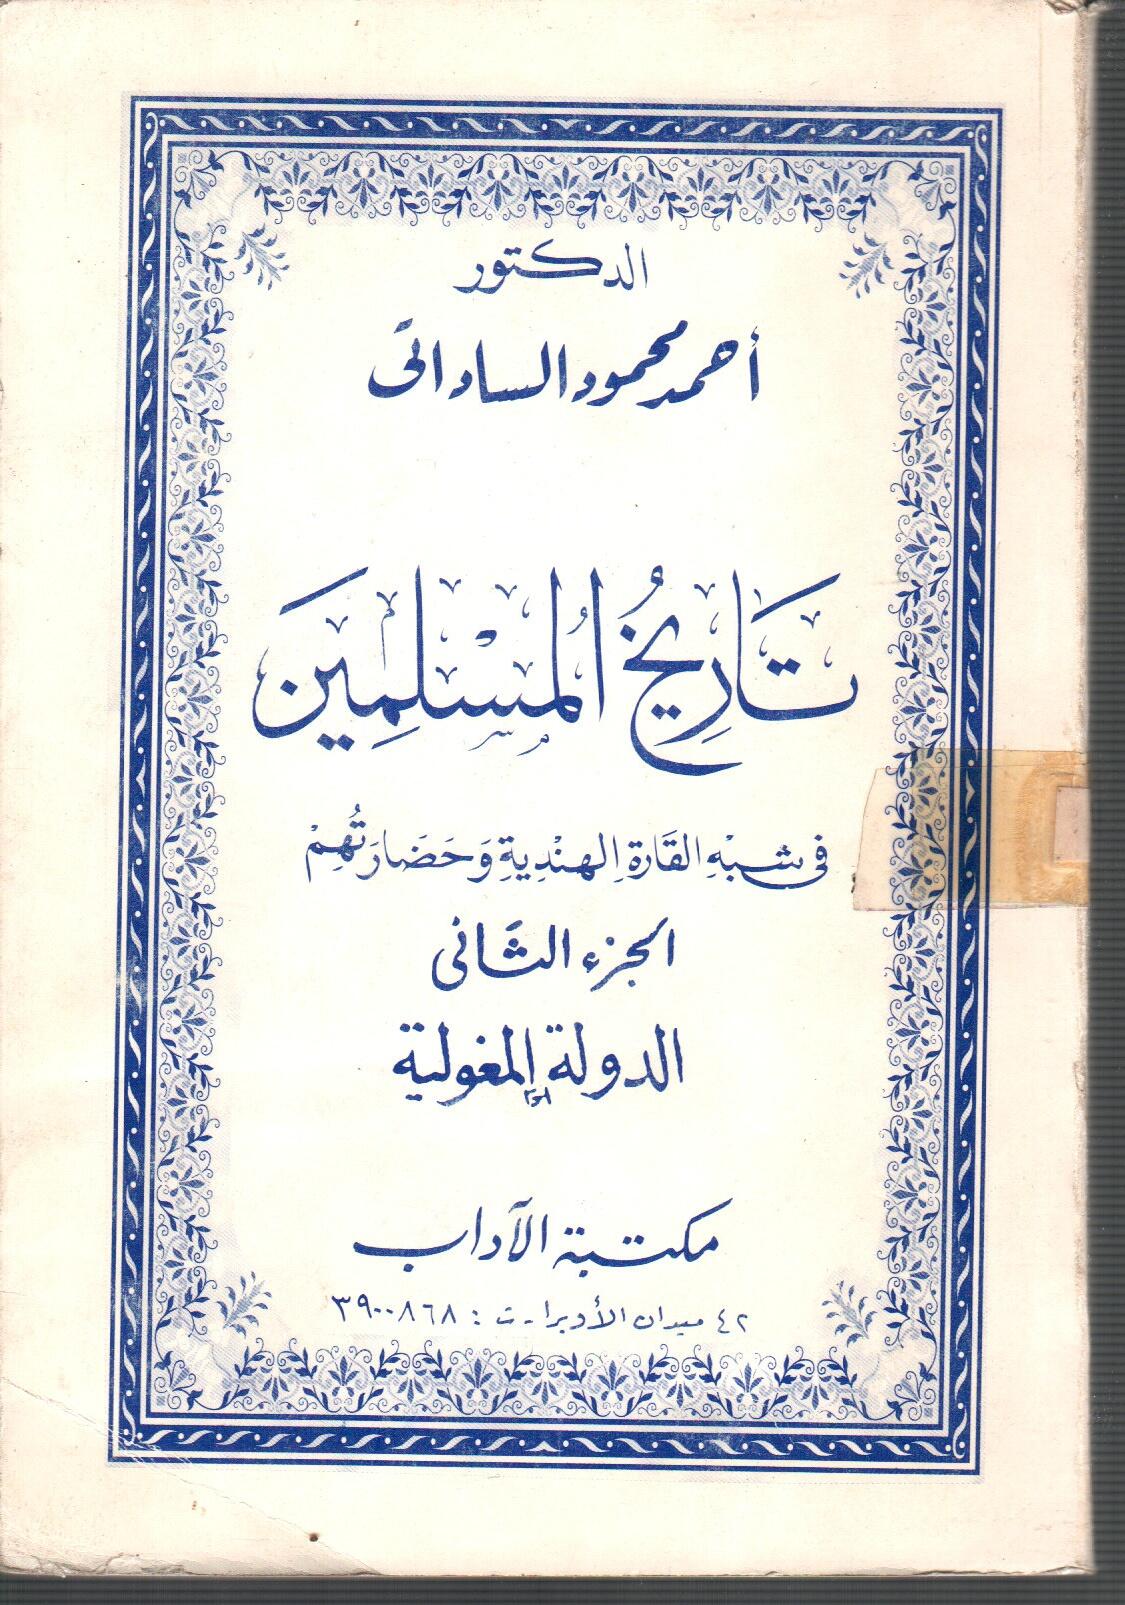 الدكتور
أحمد محمود الساداتى
تَاريخُ المُسْلِمِينَ
فى شبْهِ القَارةِ الهنْدِيةِ وَحَضَارَتُهِمْ
الجزء الثَانى
الدولة المغولية
مكتبة الآداب
٤٢ ميدان الأوبرا - ت : ٣٩٠٠٨٦٨